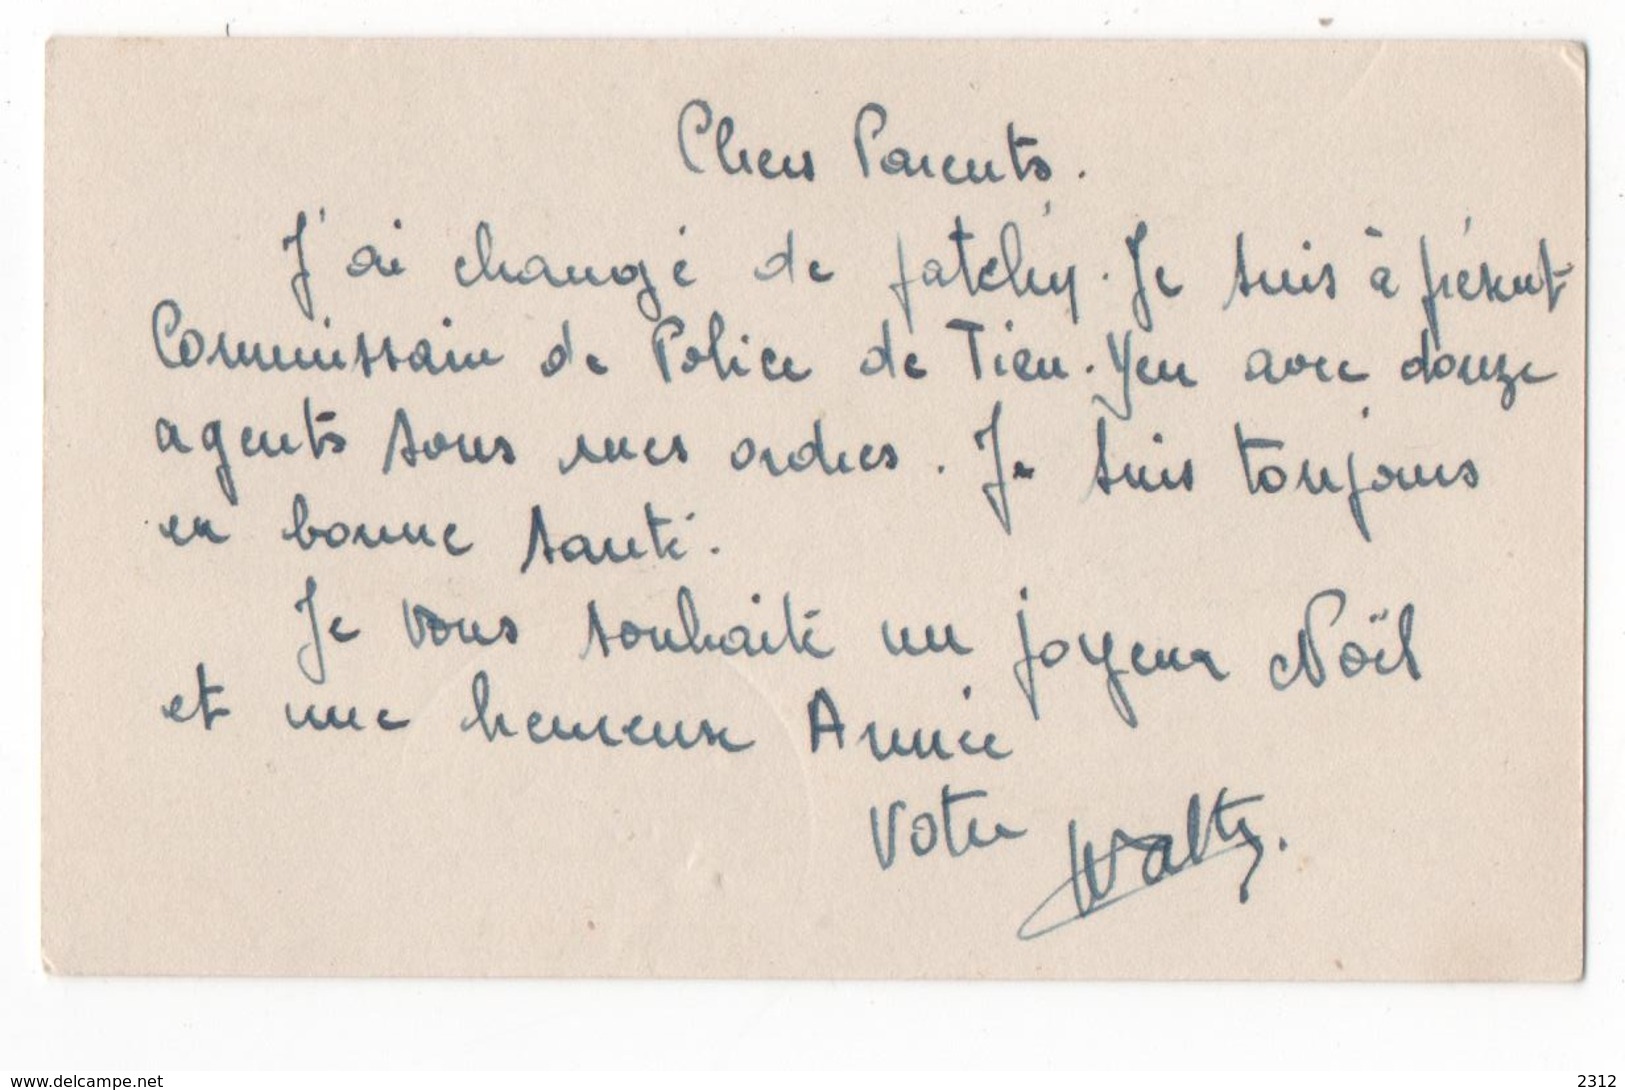 Chers Parents.
J'ai changé de fatchy. Je suis à présent
Commissaire de Police de Tien-Yen avec douze
agents sous mes ordres. Je suis toujours
en bonne santé.
Je vous souhaite un joyeux Noël
et une heureuse Année
Votre Walty.
www.delcampe.net
2312